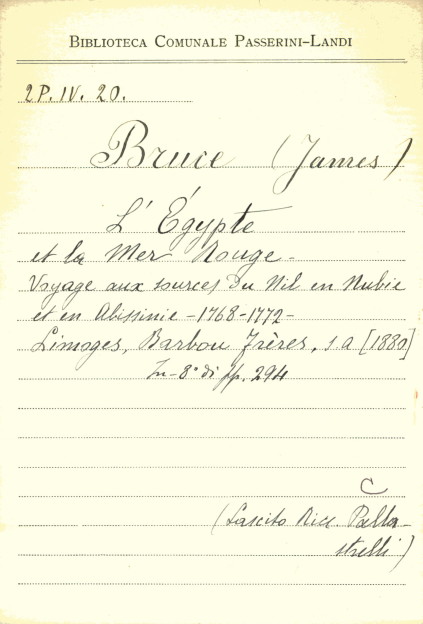 BIBLIOTECA COMUNALE PASSERINI-LANDI
2P. IV. 20.
Bruce (James)
L'Égypte
et la Mer Rouge -
Voyage aux sources du Nil en Nubie
et en Abissinie - 1768-1772 -
Limoges, Barbou Frères, s a [1880]
In-8° di pp. 294
C
(Lascito Ric. Palla-
strelli)